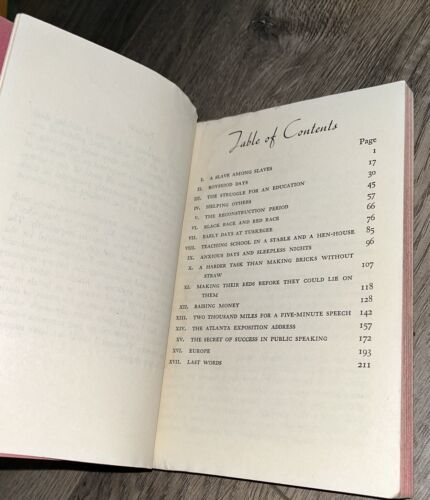 Table of Contents
Page
I. A SLAVE AMONG SLAVES 1
II. BOYHOOD DAYS 17
III. THE STRUGGLE FOR AN EDUCATION 30
IV. HELPING OTHERS 45
V. THE RECONSTRUCTION PERIOD 57
VI. BLACK RACE AND RED RACE 66
VII. EARLY DAYS AT TUSKEGEE 76
VIII. TEACHING SCHOOL IN A STABLE AND A HEN-HOUSE 85
IX. ANXIOUS DAYS AND SLEEPLESS NIGHTS 96
X. A HARDER TASK THAN MAKING BRICKS WITHOUT
STRAW 107
XI. MAKING THEIR BEDS BEFORE THEY COULD LIE ON
THEM 118
XII. RAISING MONEY 128
XIII. TWO THOUSAND MILES FOR A FIVE-MINUTE SPEECH 142
XIV. THE ATLANTA EXPOSITION ADDRESS 157
XV. THE SECRET OF SUCCESS IN PUBLIC SPEAKING 172
XVI. EUROPE 193
XVII. LAST WORDS 211